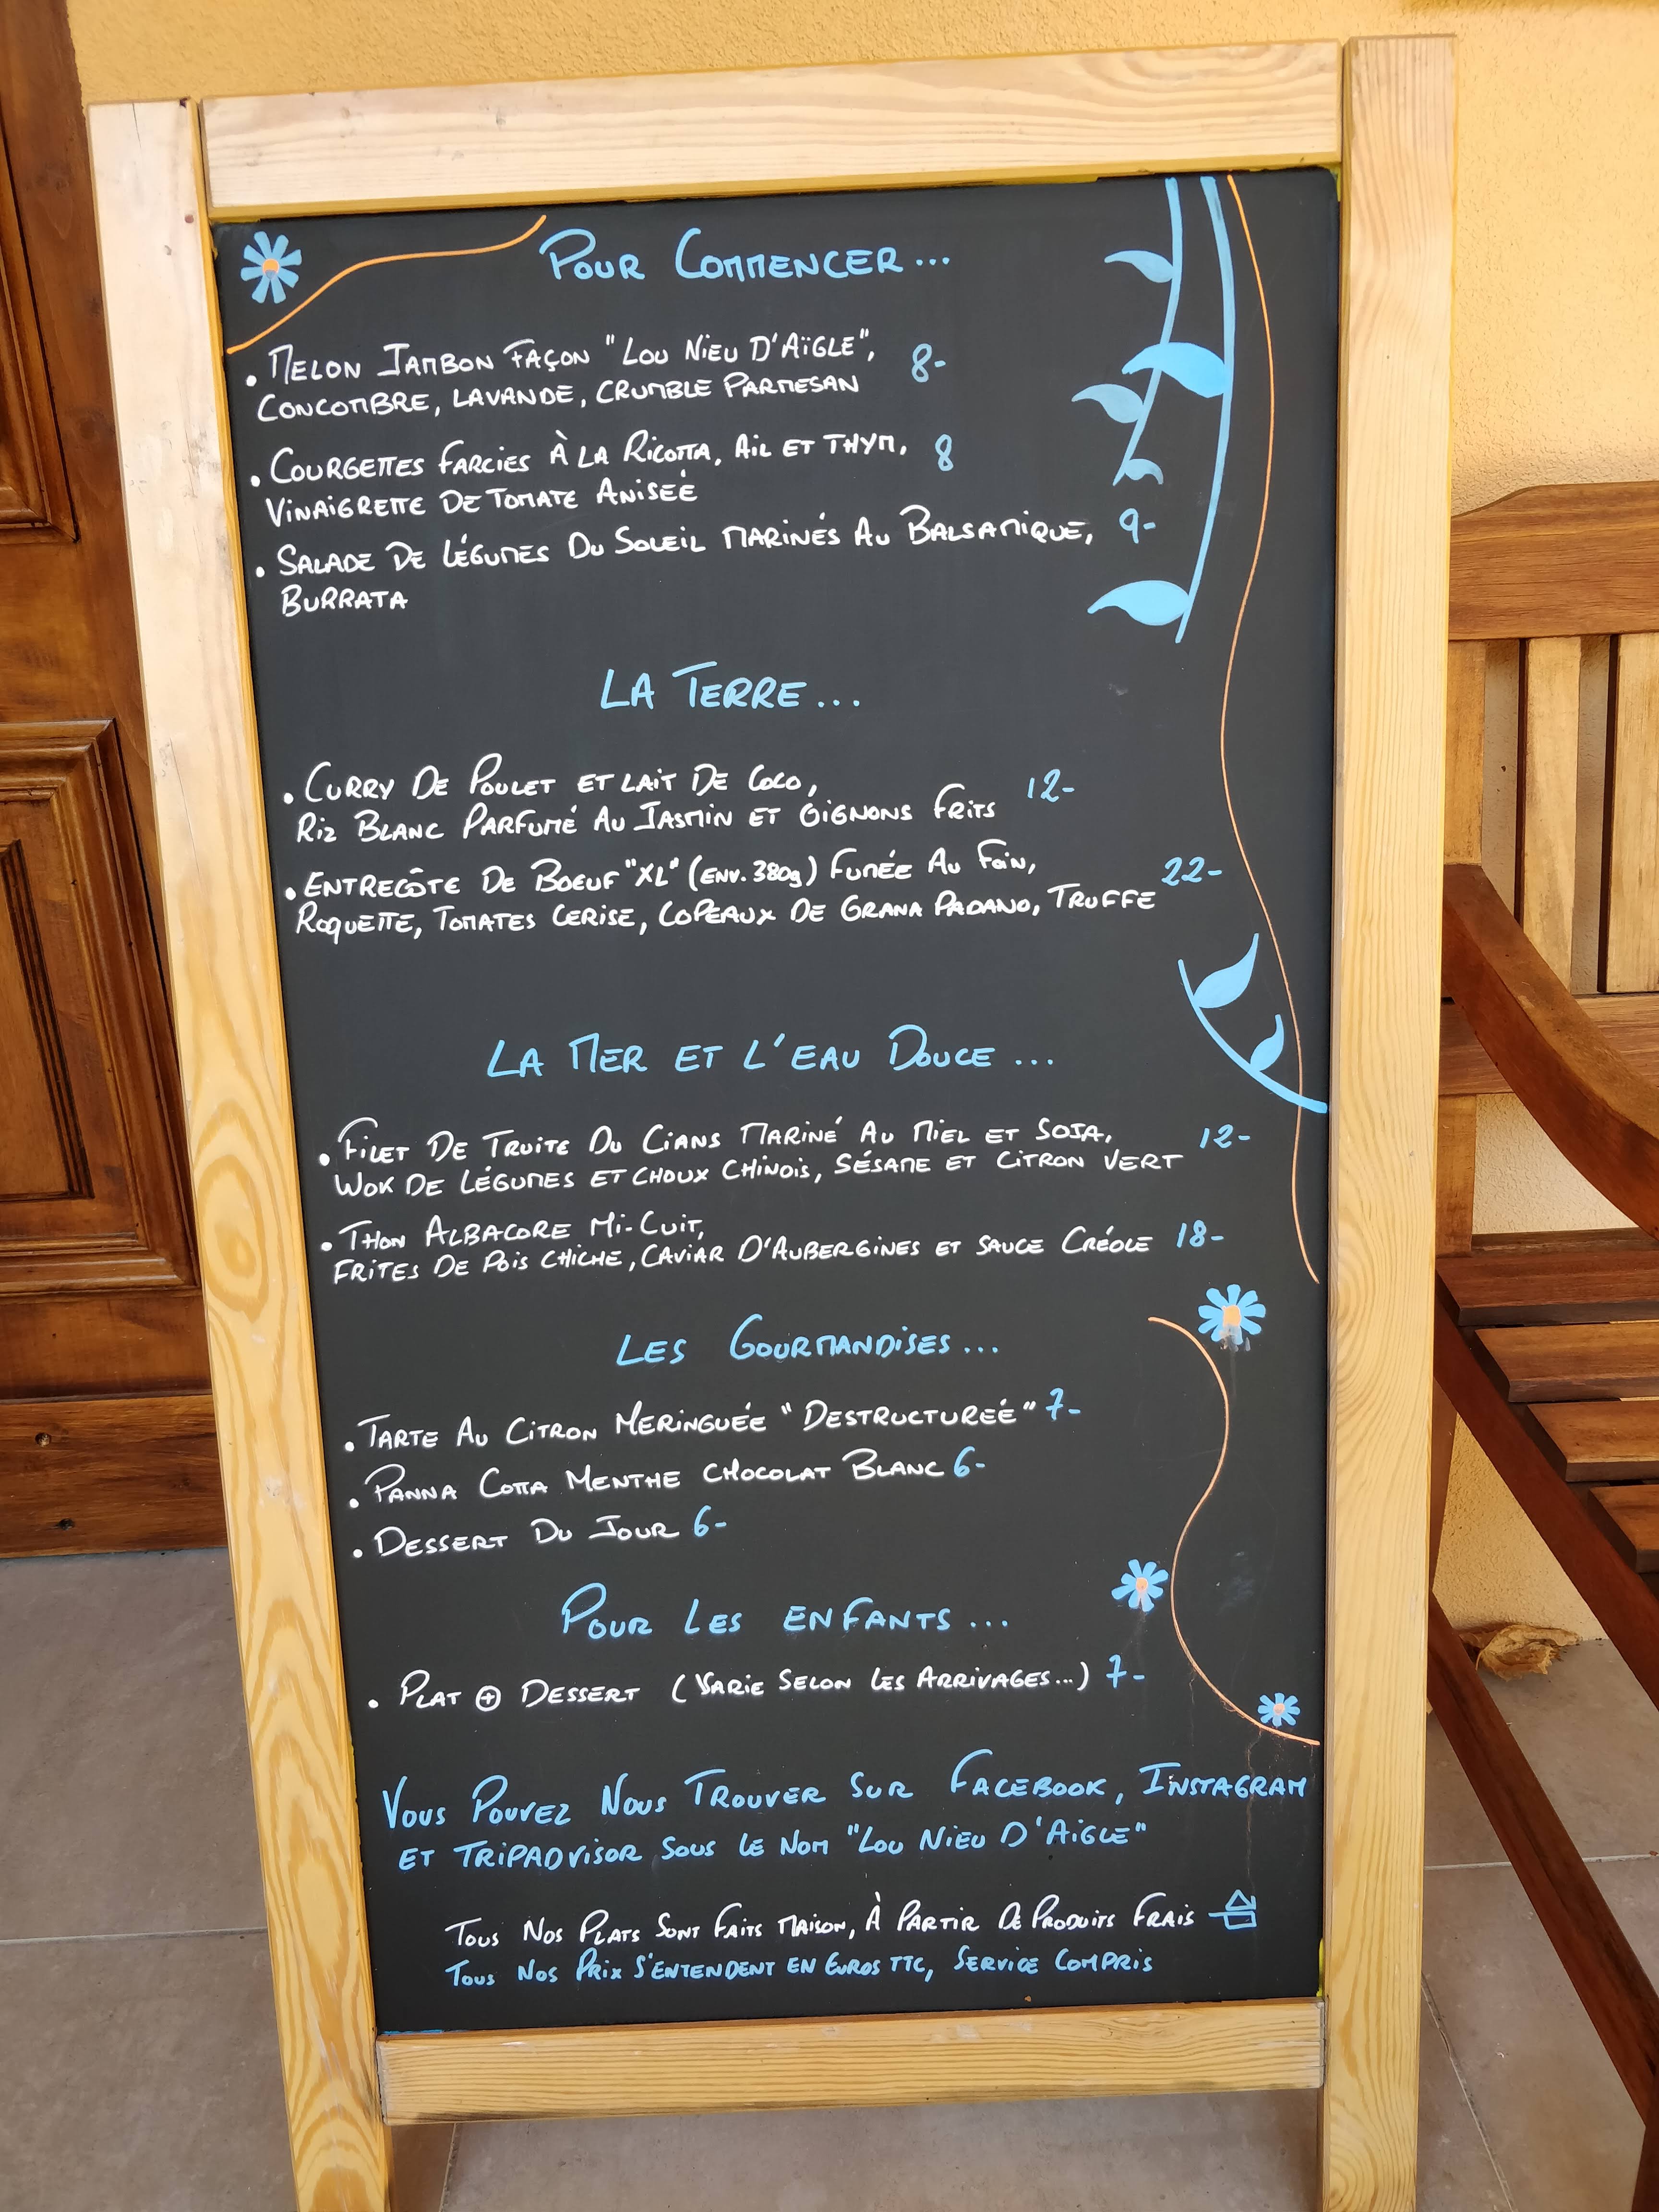 Pour Commencer...
• Melon Jambon Façon "Lou Nieu D'Aïgle", 8-
Concombre, Lavande, Crumble Parmesan
• Courgettes Farcies À La Ricotta, Ail et Thym, 8
Vinaigrette De Tomate Aniseé
• Salade De Légumes Du Soleil Marinés Au Balsamique, 9-
Burrata
La Terre...
• Curry De Poulet et Lait De Coco, 12-
Riz Blanc Parfumé Au Jasmin et Oignons Frits
• Entrecôte De Boeuf "XL" (Env. 380g) Fumée Au Foin, 22-
Roquette, Tomates Cerise, Copeaux De Grana Padano, Truffe
La Mer et L'eau Douce...
• Filet De Truite Du Cians Mariné Au Miel et Soja, 12-
Wok De Légumes et Choux Chinois, Sésame et Citron Vert
• Thon Albacore Mi-Cuit,
Frites De Pois Chiche, Caviar D'Aubergines et Sauce Créole 18-
Les Gourmandises...
• Tarte Au Citron Meringuée "Destructureé" 7-
• Panna Cotta Menthe Chocolat Blanc 6-
• Dessert Du Jour 6-
Pour Les Enfants...
• Plat + Dessert (Varie Selon Les Arrivages...) 7-
Vous Pouvez Nous Trouver Sur Facebook, Instagram
et Tripadvisor Sous Le Nom "Lou Nieu D'Aïgle"
Tous Nos Plats Sont Faits Maison, À Partir De Produits Frais
Tous Nos Prix S'entendent en Euros TTC, Service Compris